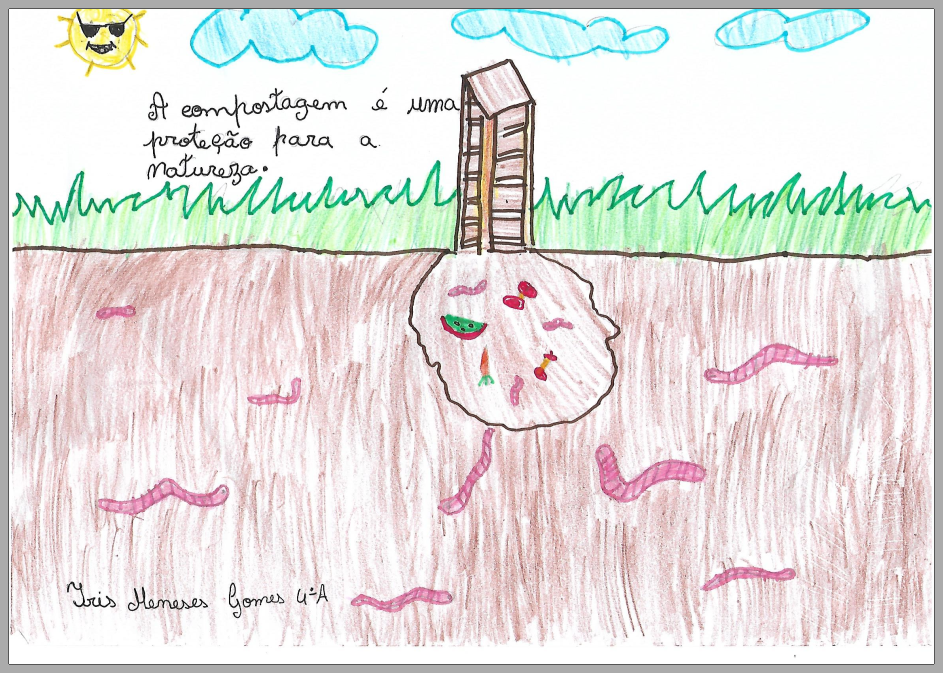 A compostagem é uma
proteção para a
natureza.
Iris Meneses Gomes 4ºA